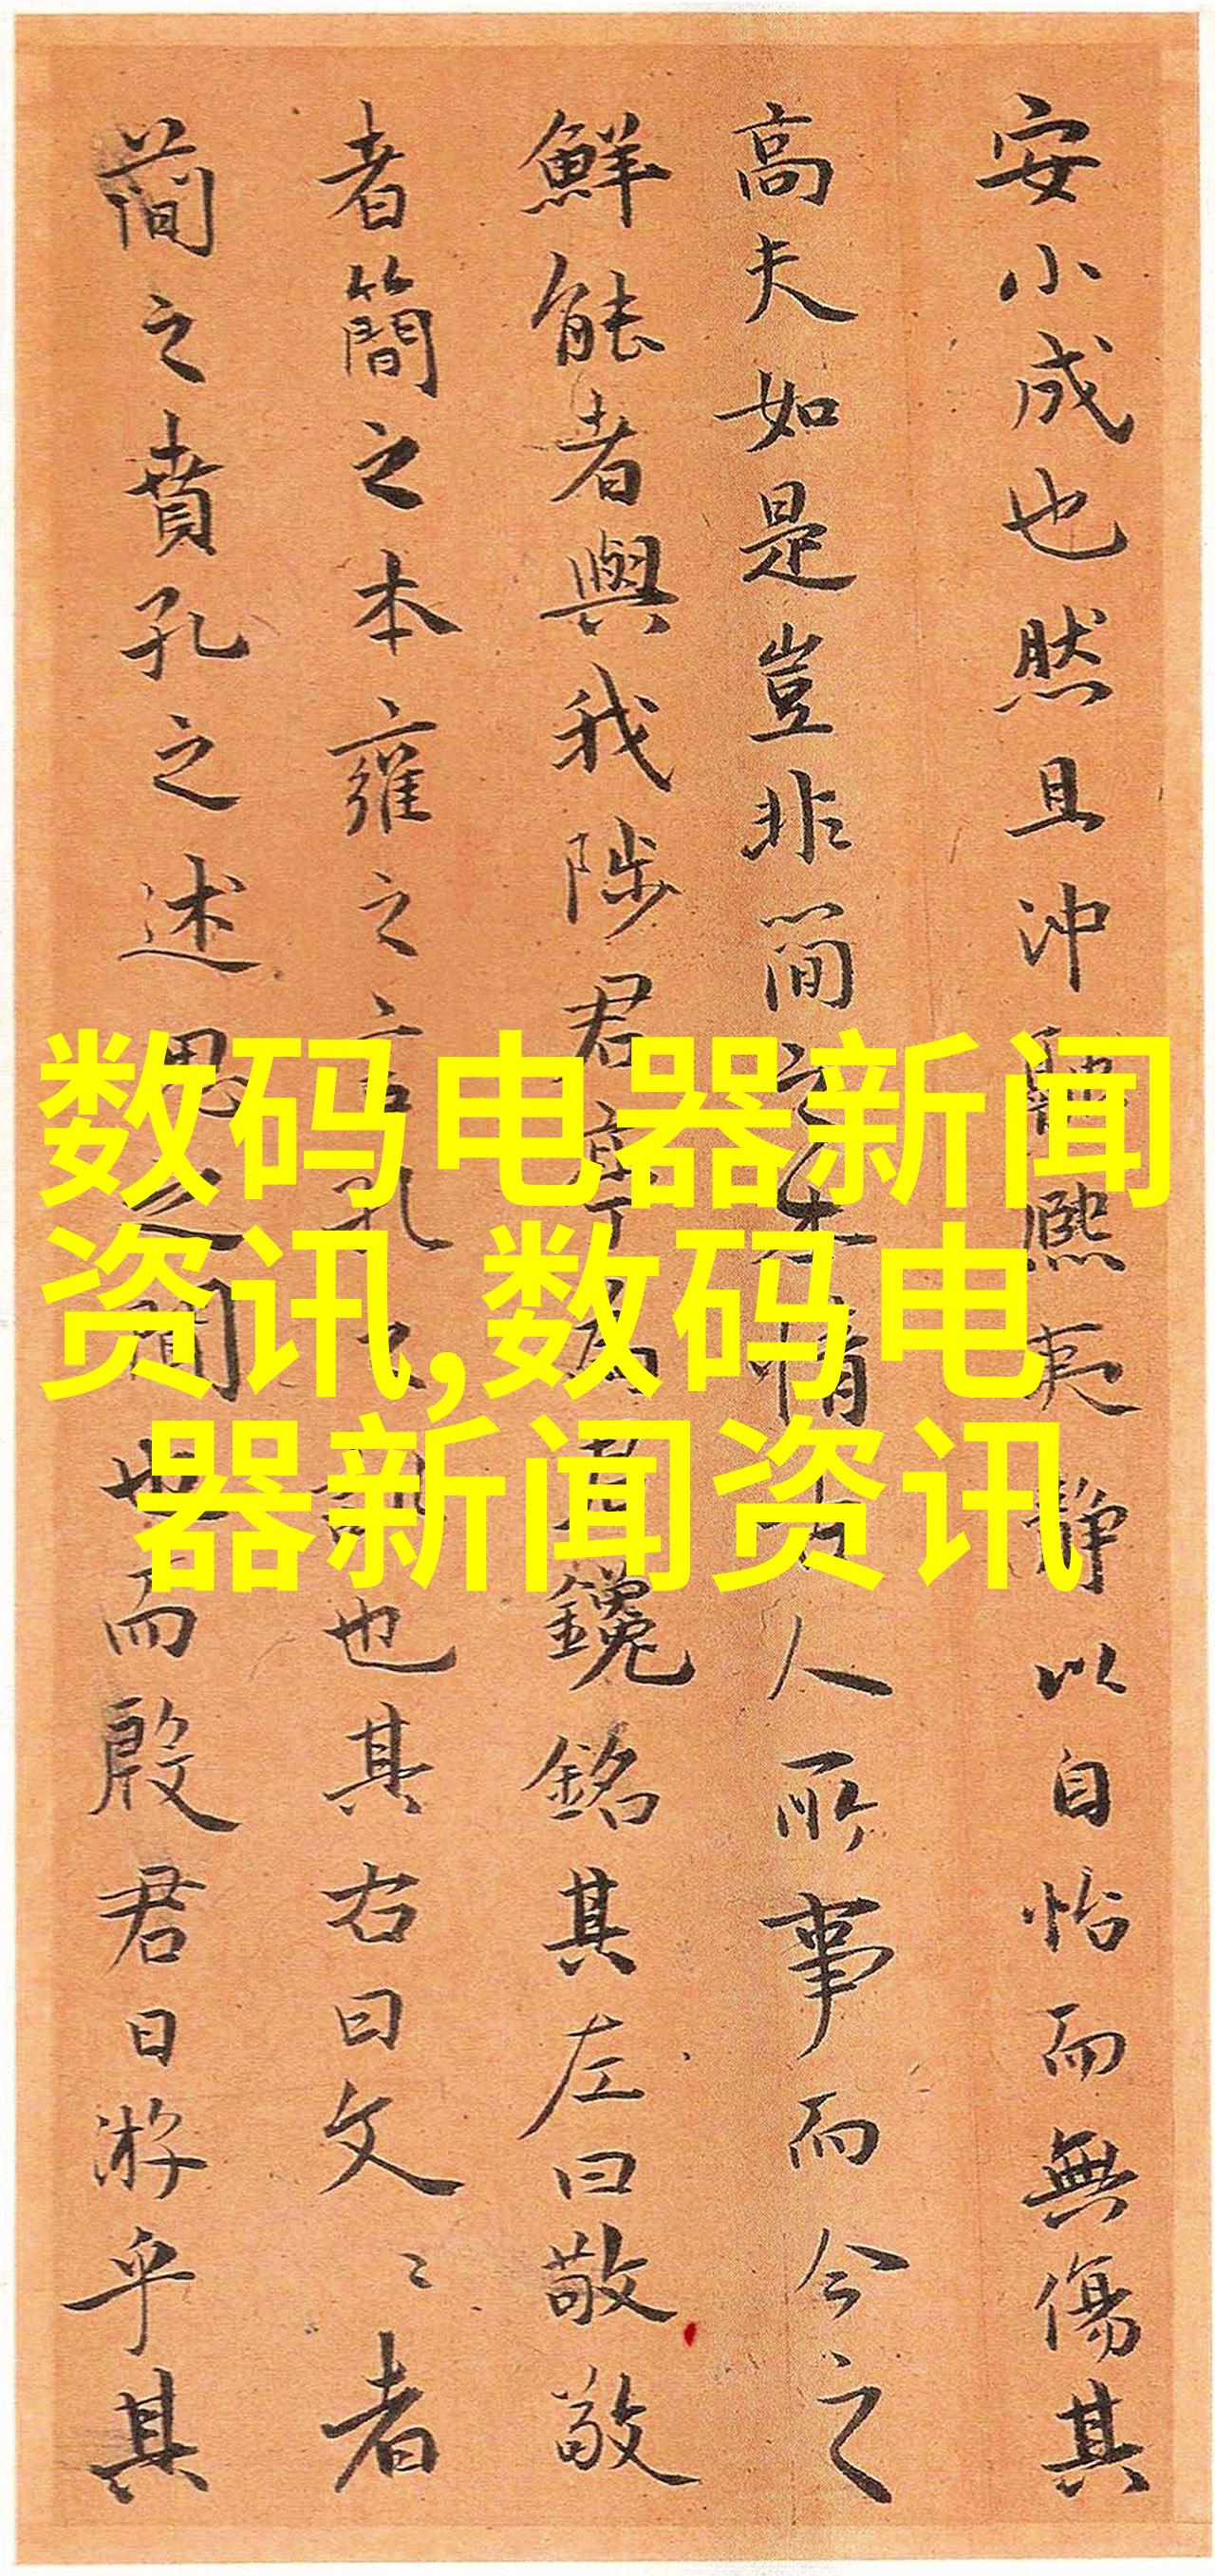 安小成也然且沖融熙夷静以自怡而無傷其
高夫如是豈非簡之本情古人所事而今之
鮮能者與我陟君章
鑱銘其左曰敬敬
者簡之本雍之言孔
也其右曰文〻者
簡之賁孔之述思之間也而殷君日游乎其
数码电器新闻
资讯,数码电
器新闻资讯